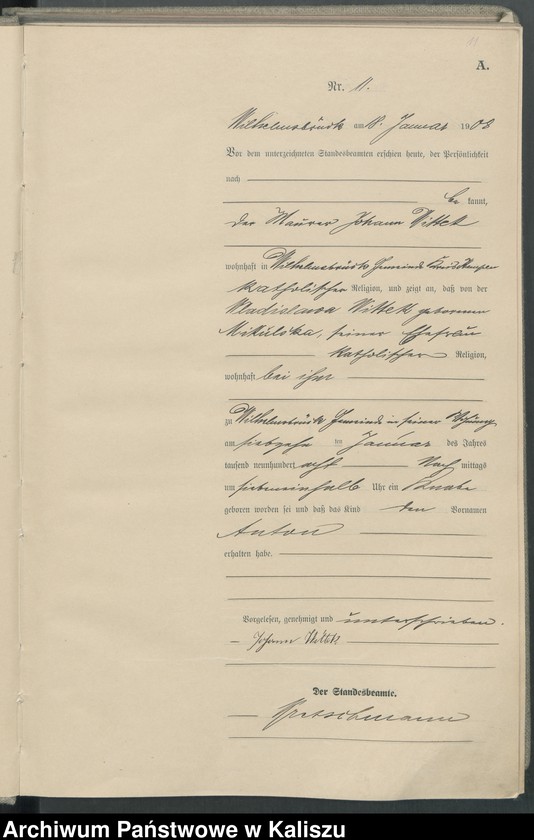 11
A.
Nr. 11.
Wilhelmsbrück am 18. Januar 1908
Vor dem unterzeichneten Standesbeamten erschien heute, der Persönlichkeit
nach
be kannt,
der Maurer Johann Wittek
wohnhaft in Wilhelmsbrück Gemeinde Kreis Kempen
katholischer Religion, und zeigt an, daß von der
Wladislawa Wittek geborenen
Mikulska, seiner Ehefrau
katholischer Religion,
wohnhaft bei ihm
zu Wilhelmsbrück Gemeinde in seiner Wohnung
am siebzehn ten Januar des Jahres
tausend neunhundert acht Nach mittags
um siebeneinhalb Uhr ein Knabe
geboren worden sei und daß das Kind den Vornamen
Anton
erhalten habe.
Vorgelesen, genehmigt und unterschrieben.
Johann Wittek
Der Standesbeamte.
Kretschmann
Archiwum Państwowe w Kaliszu